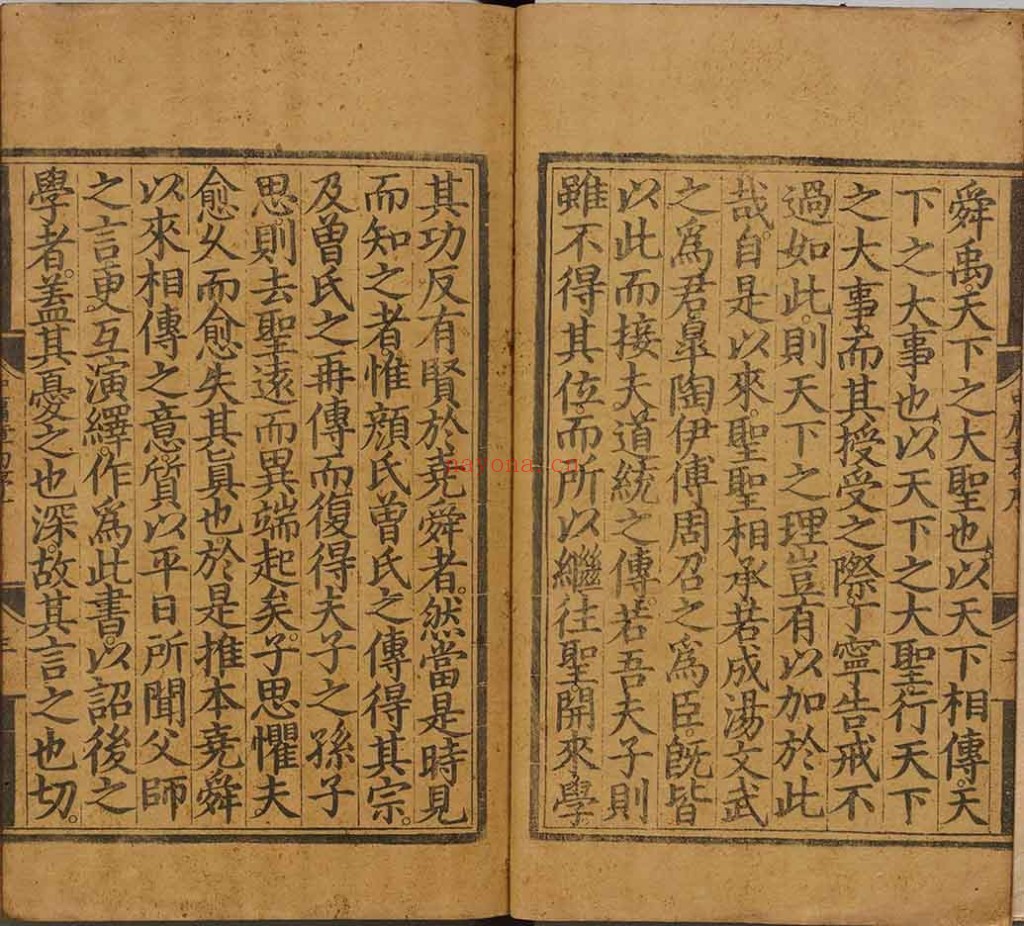 舜禹天下之大聖也以天下相傳天
下之大事也以天下之大聖行天下
之大事而其授受之際丁寧告戒不
過如此則天下之理豈有以加於此
哉自是以來聖聖相承若成湯文武
之爲君臯陶伊傅周召之爲臣旣皆
以此而接夫道統之傳若吾夫子則
雖不得其位而所以繼往聖開來學
其功反有賢於堯舜者然當是時見
而知之者惟顔氏曽氏之傳得其宗
及曽氏之再傳而復得夫子之孫子
思則去聖遠而異端起矣子思懼夫
愈乆而愈失其眞也於是推本堯舜
以來相傳之意質以平日所聞父師
之言更互演繹作爲此書以詔後之
學者葢其憂之也深故其言之也切
nayona.cn